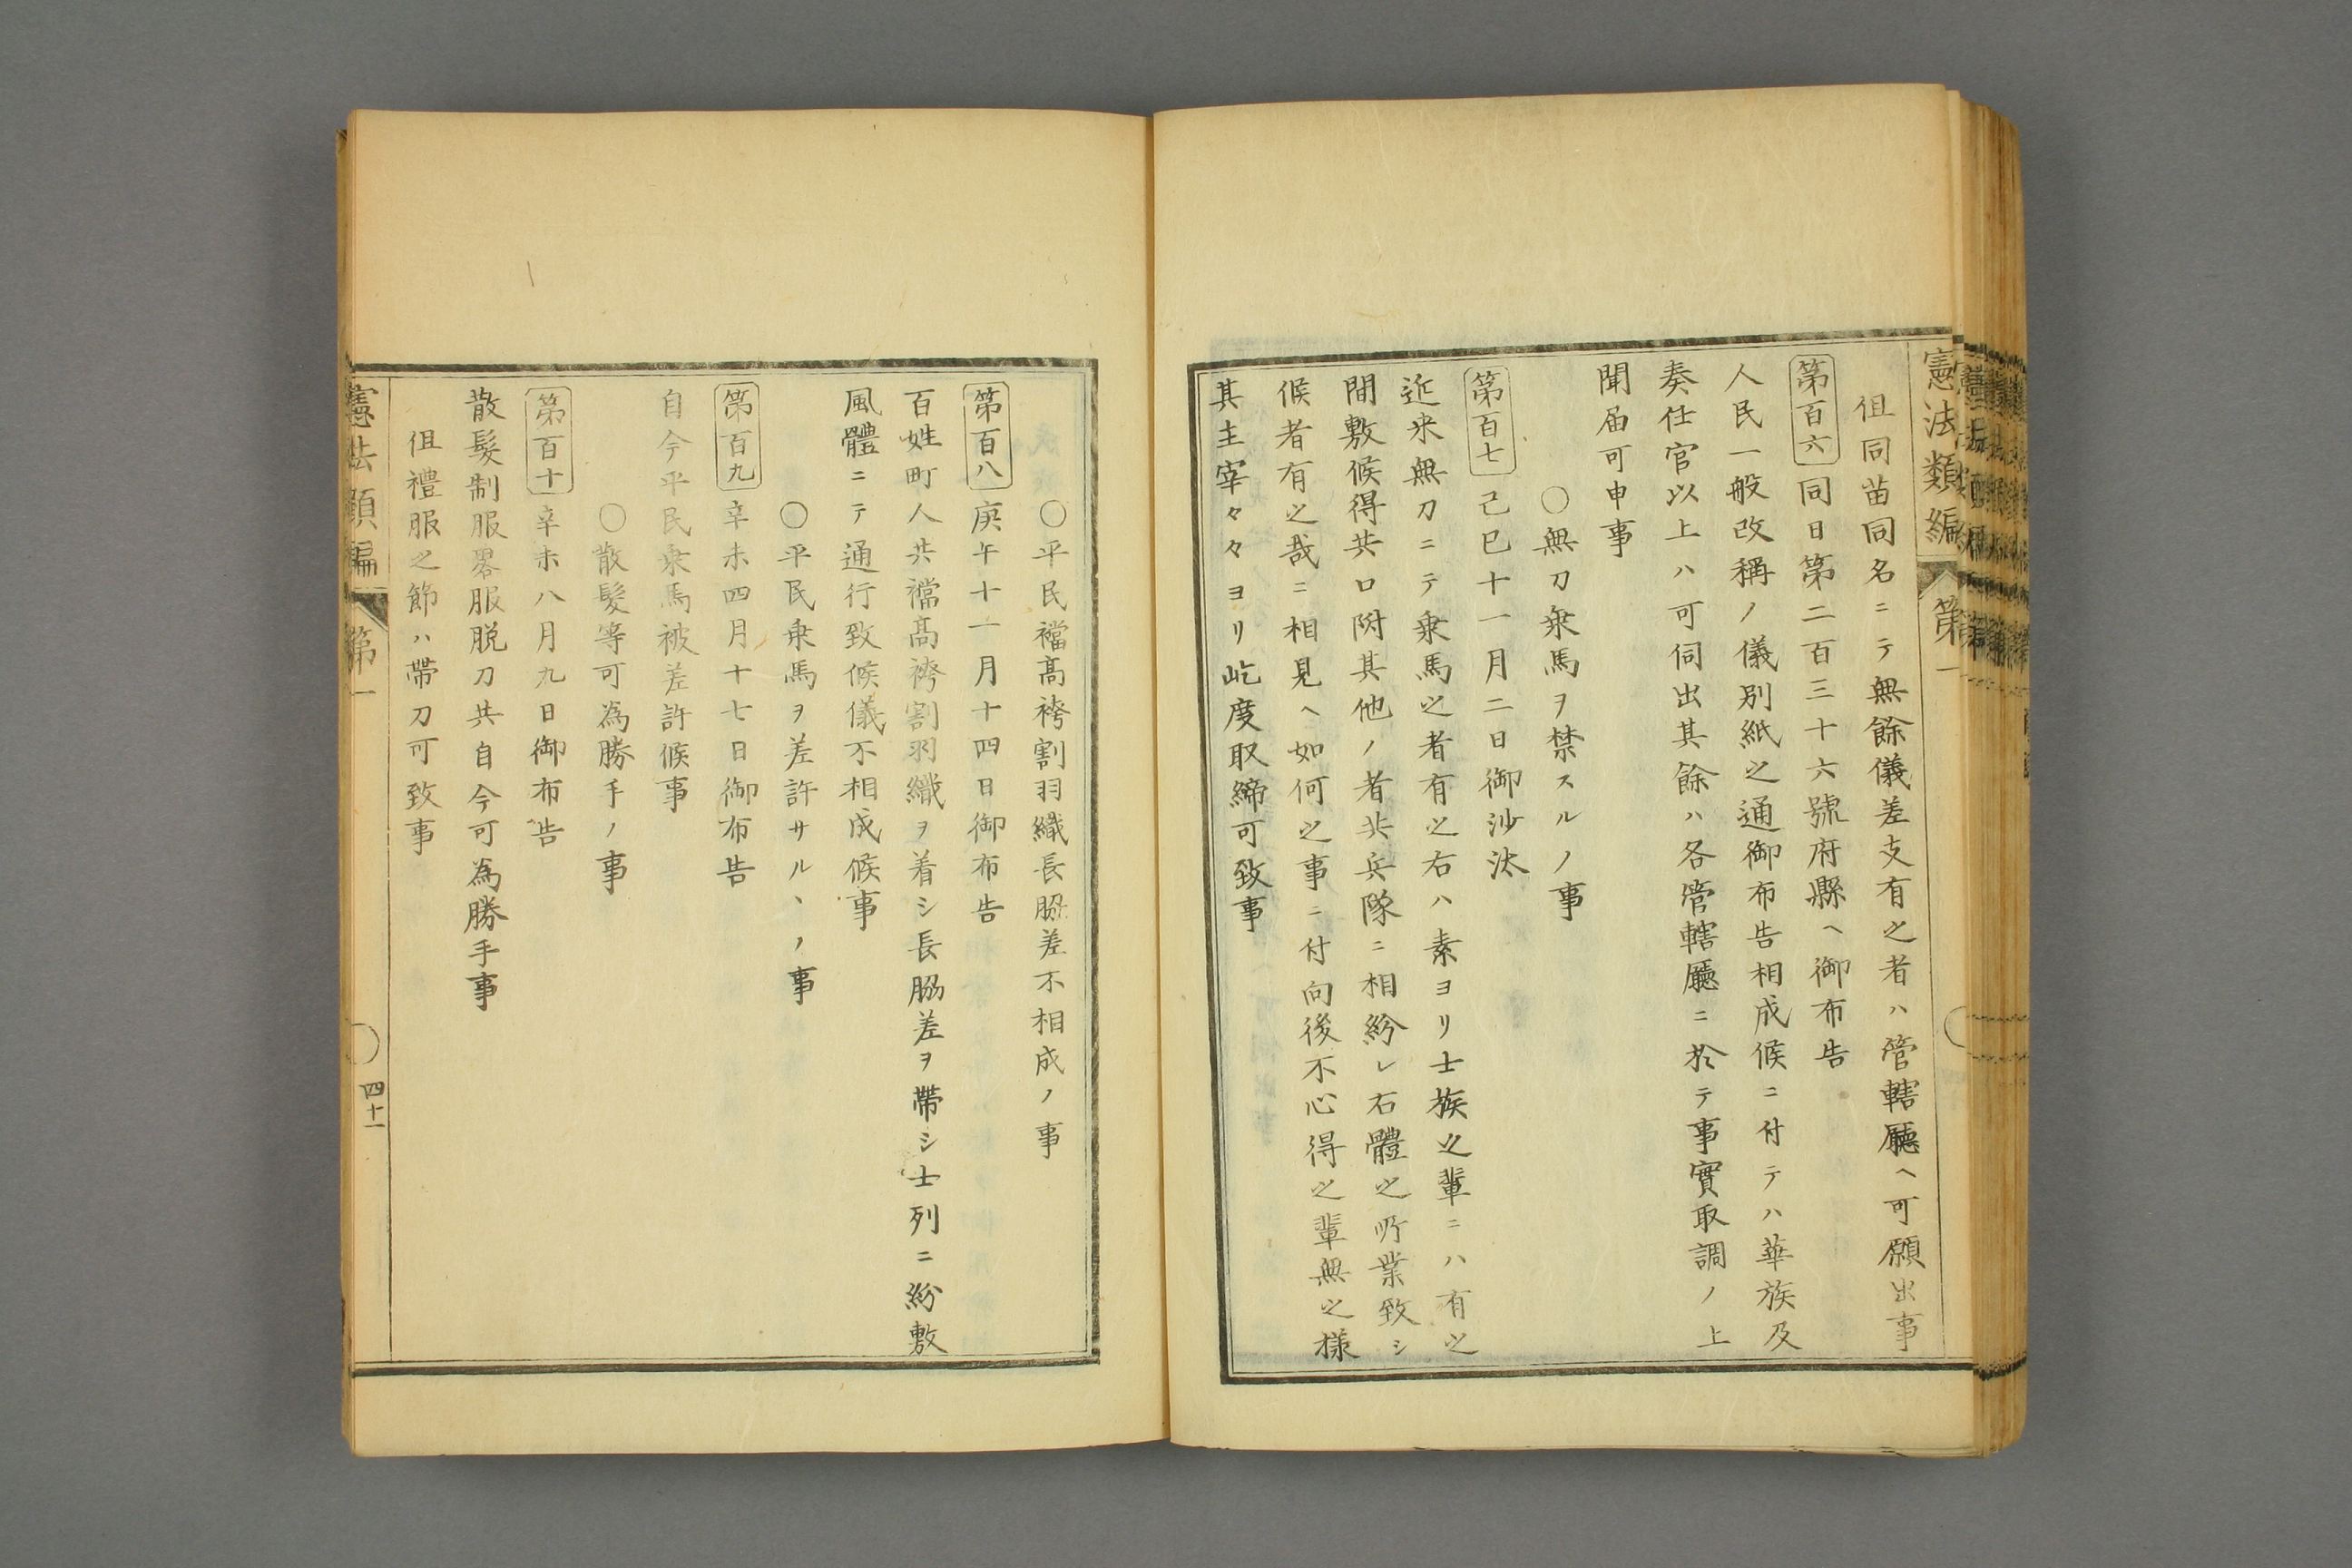 憲法類編 第一
但同苗同名ニテ無餘儀差支有之者ハ管轄廳ヘ可願出事
第百六 同日第二百三十六號府縣ヘ御布告
人民一般改稱ノ儀別紙之通御布告相成候ニ付テハ華族及
奏任官以上ハ可伺出其餘ハ各管轄廳ニ於テ事實取調ノ上
聞届可申事
○無刀乗馬ヲ禁スルノ事
第百七 己巳十一月二日御沙汰
近来無刀ニテ乗馬之者有之右ハ素ヨリ士族之輩ニハ有之
間敷候得共口附其他ノ者共兵隊ニ相紛レ右體之所業致シ
候者有之哉ニ相見ヘ如何之事ニ付向後不心得之輩無之様
其主宰々々ヨリ屹度取締可致事
○平民襠高袴割羽織長脇差不相成ノ事
第百八 庚午十一月十四日御布告
百姓町人共襠高袴割羽織ヲ着シ長脇差ヲ帶シ士列ニ紛敷
風體ニテ通行致候儀不相成候事
○平民乗馬ヲ差許サルヽノ事
第百九 辛未四月十七日御布告
自今平民乗馬被差許候事
○散髪等可為勝手ノ事
第百十 辛未八月九日御布告
散髪制服畧服脱刀共自今可為勝手事
但禮服之節ハ帶刀可致事
憲法類編 第一 四十一